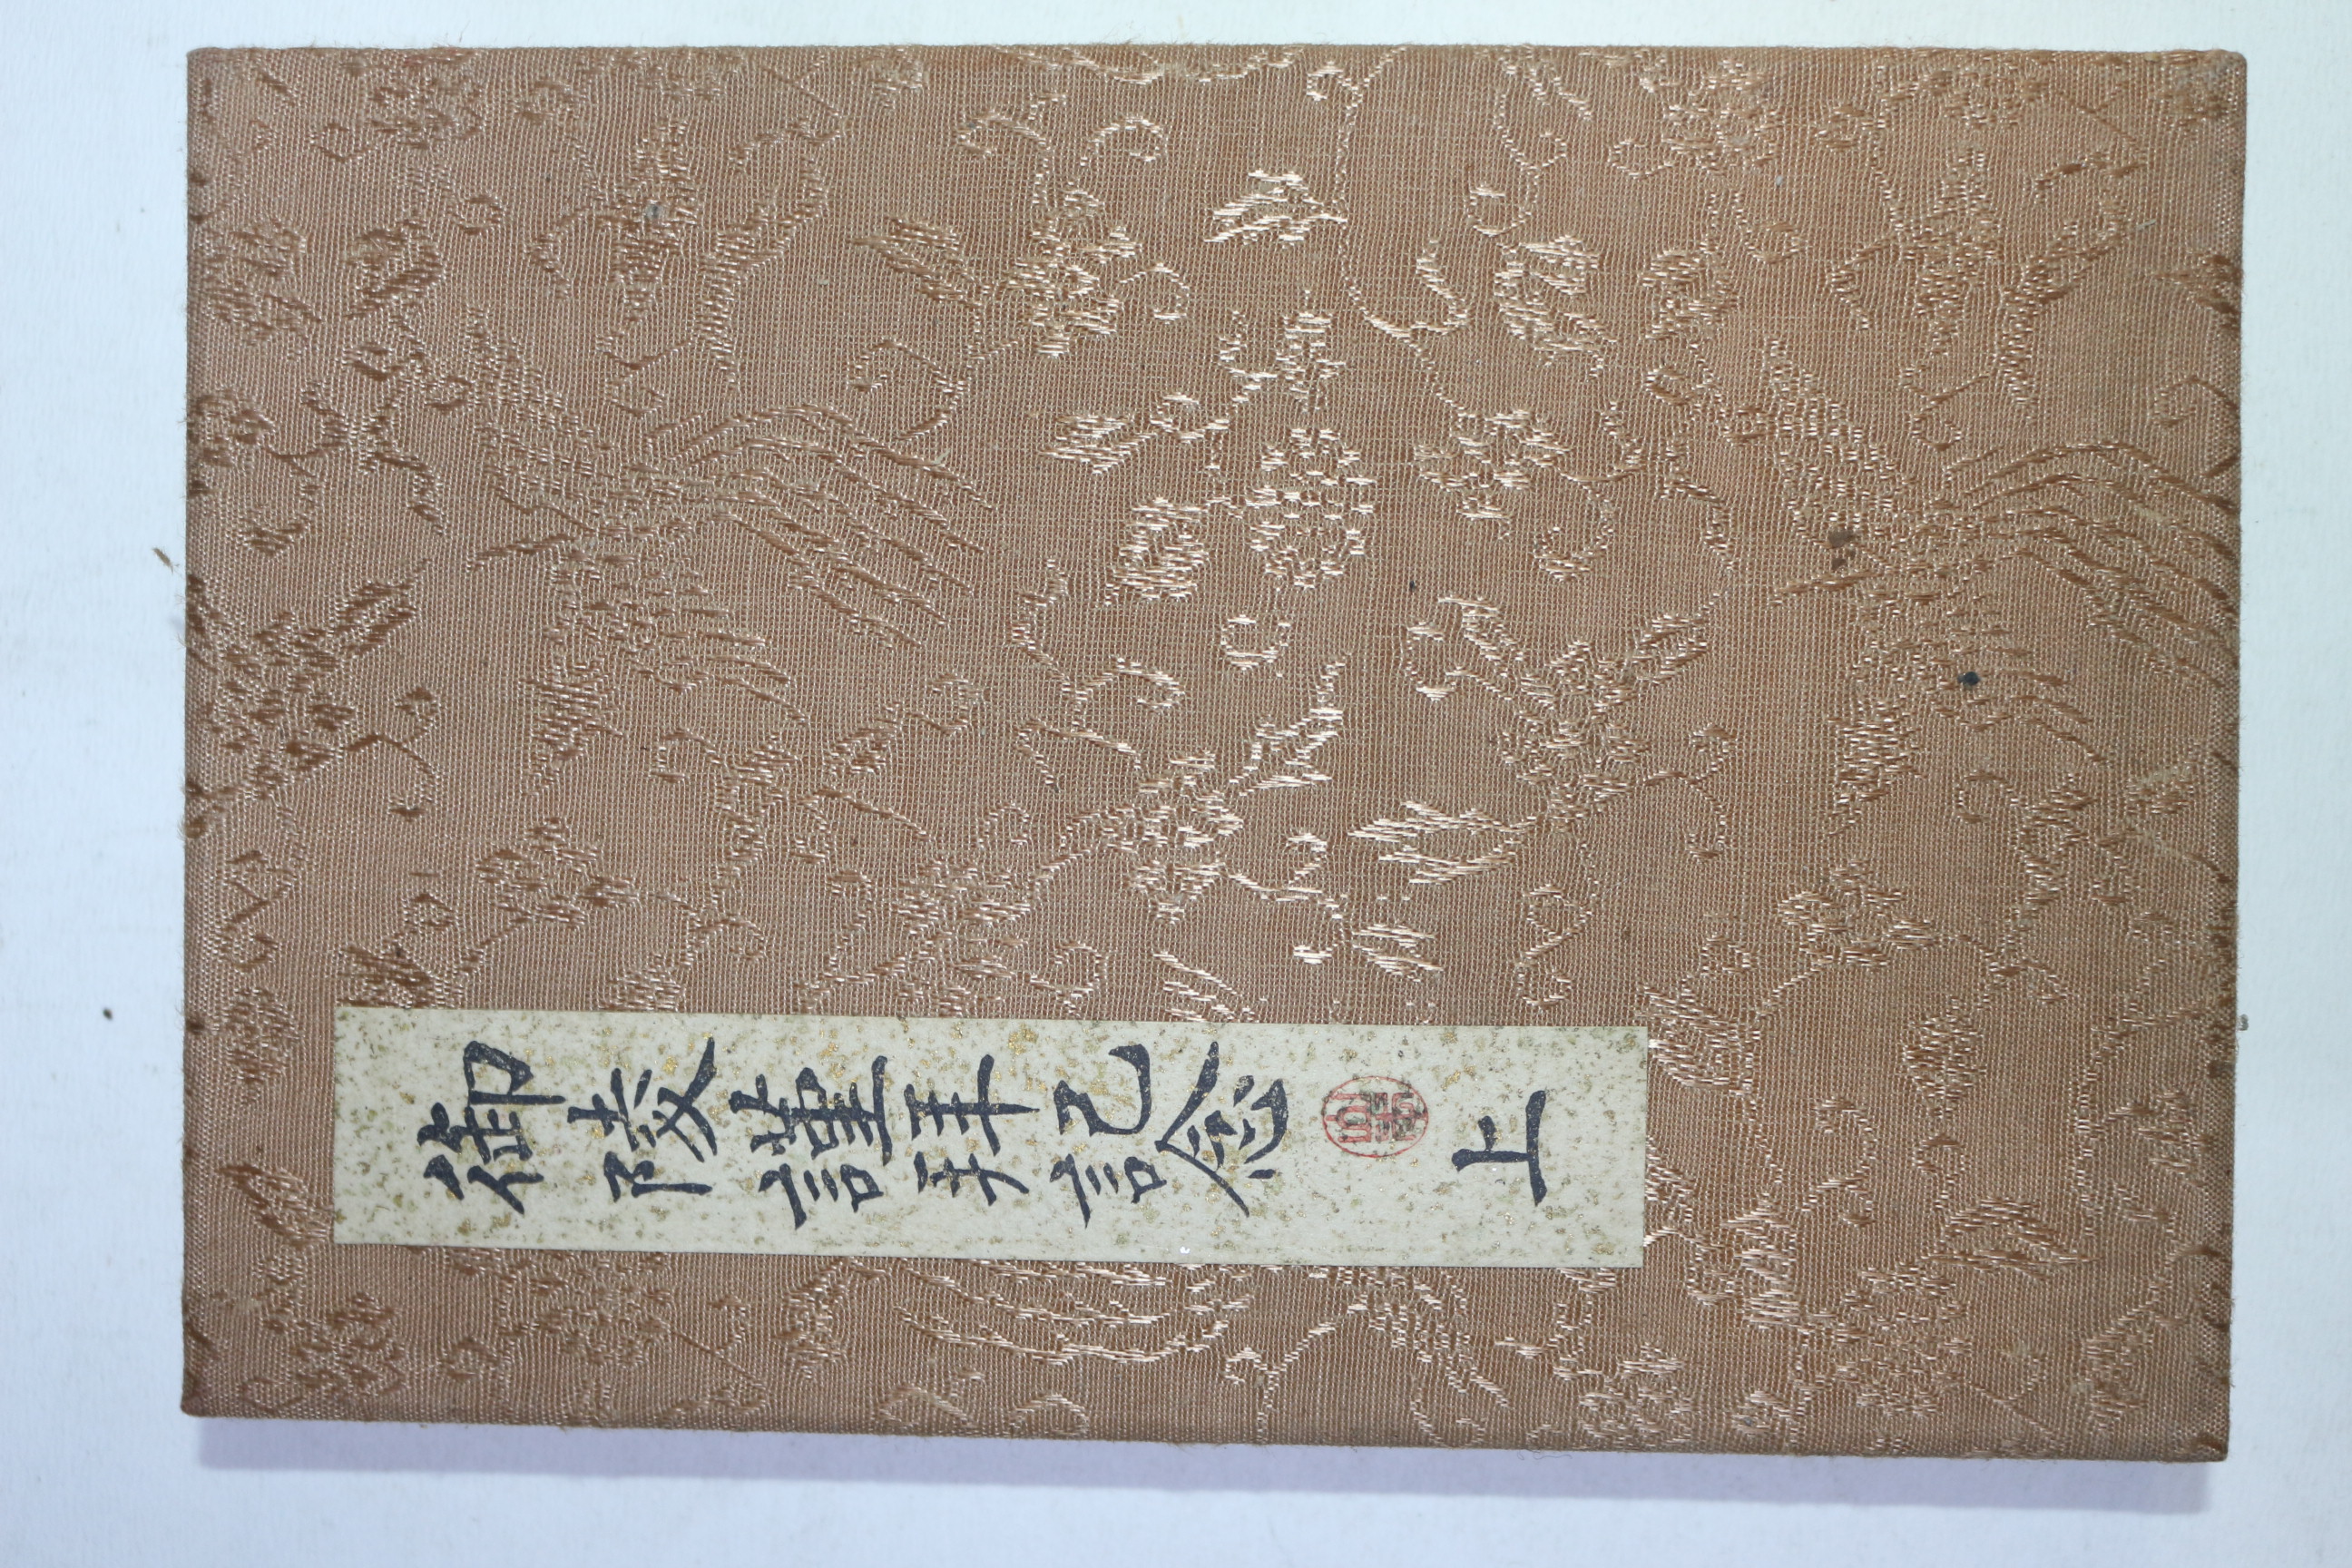 御陵謹拝記念 上